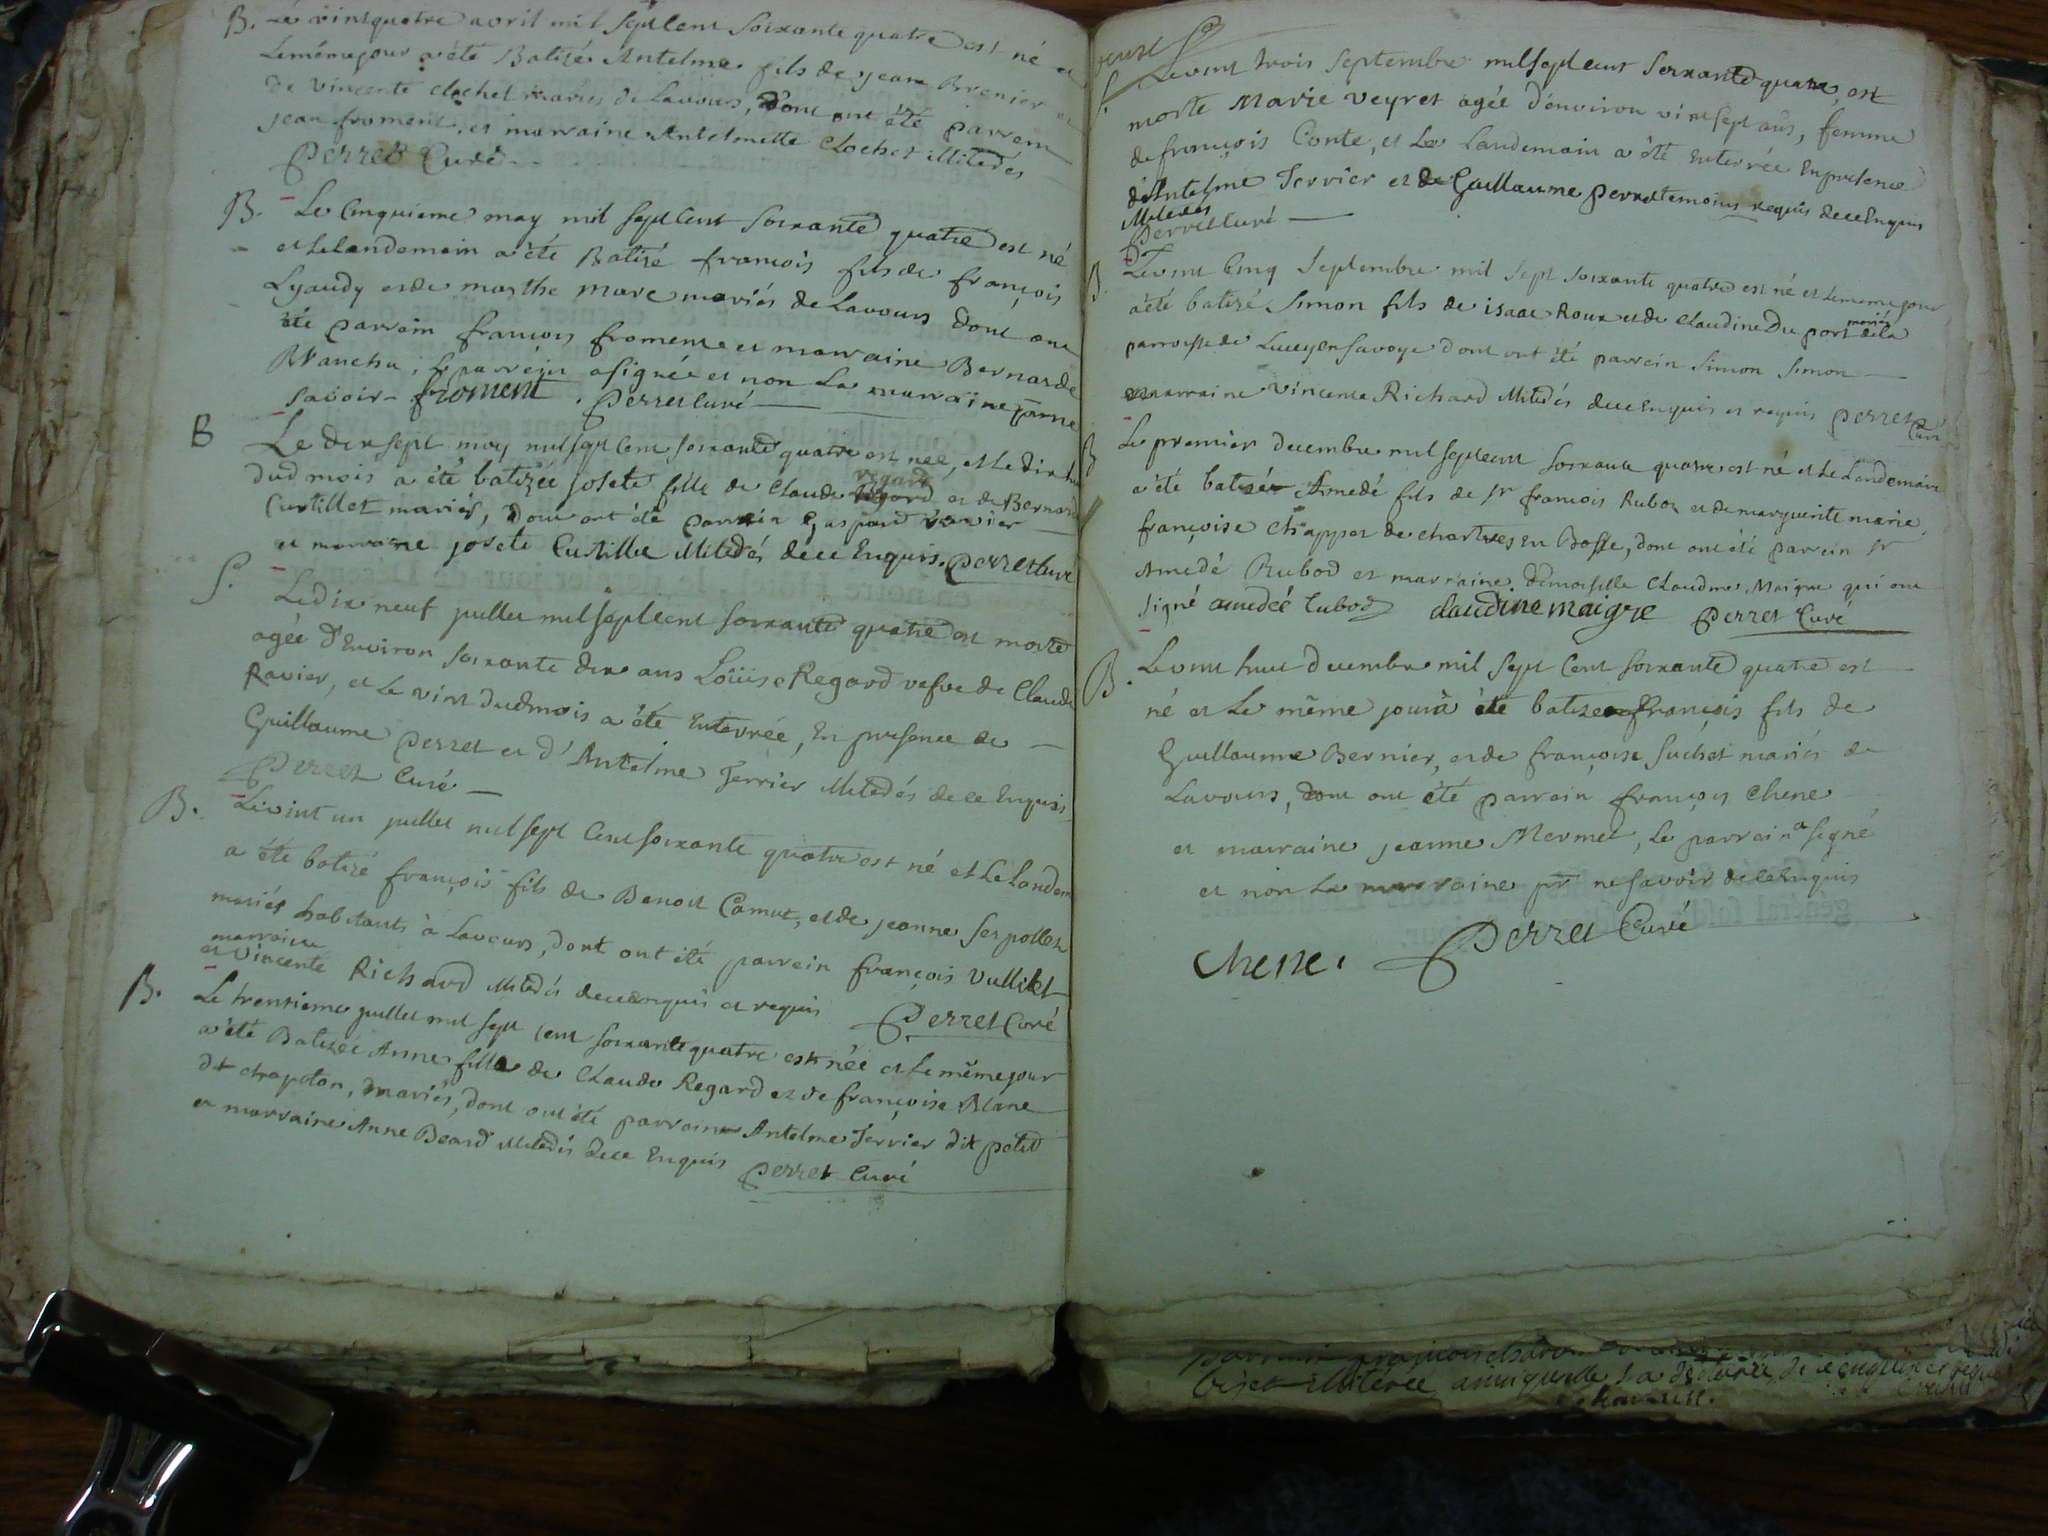 B. Le vintquatre avril mil septcent soixante quatre est né et
le même jour a été Batisé Antelme fils de jean Brenier et
de vincente clochet mariés de Lavours, dont ont été parrein
jean froment, et marraine Antelmette Clochet illitedés
Perret Curé
B. Le Cinquieme may mil sept Cent soixante quatre est né
et le landemain a été Batisé françois fils de françois
Lyaudy et de marthe marc mariés de Lavours dont ont
été parrain françois froment et marraine Bernarde
Blanchu, le parrein a signé et non la marraine pr ne
savoir froment . Perret curé
B Le dix sept may mil sept cent soixante quatre est née, et le dix huit
dud mois a été batizée josete fille de Claude regard et de Bernarde
Curtillet mariés, dont ont été parrain Gaspard
et marraine josete Curtillet illitedés de ce Enquis. Perret curé
S. Le dix neuf juillet mil sept cent soixante quatre est morte
agée d'Environ soixante dix ans Loüise Regard vefve de Claude
Ravier, et Le vint dud mois a été Enterrée, En presence de
Guillaume Perret et d'Antelme Terrier illitedés de ce Enquis,
Perret Curé
B. Le vint un juillet mil sept Cent soixante quatre est né et le landem
a été batizé françois fils de Benoit Camut, et de jeanne Serpollet
mariés habitants à Lavours, dont ont été parrein françois Vullilet
marraine
et vincente Richard illitedés de ce enquis et requis Perret Curé
B. Le trentieme juillet mil sept cent soixante quatre est née et le même jour
a été Batizée Anne fille de Claude Regard et de françoise Blanc
dt chapoton, mariés, dont ont été parrain Antelme Terrier dit petit
et marraine Anne Beard illitedés de ce Enquis Perret Curé
S. Le vint trois septembre mil sept cent soixante quatre, est
morte Marie veyret agée d'environ vint sept ans, femme
de françois Conte, et Le landemain a été Enterrée En presence
d'Antelme Terrier et de Guillaume perret temoins requis de ce Enquis
illitedés
Perret curé
B. Le vint Cinq Septembre mil sept soixante quatre est né et le meme jour
a été batizé Simon fils de isaac Roux et de Claudine Du port mariés de la
parroisse de Lucey en Savoye dont ont été parrein Simon Simon
et marraine vincente Richard illitedés de ce enquis et requis Perret Curé
B Le premier decembre mil sept cent soixante quatre est né et le Landemain
a été batizé Amedé fils de sr françois Rubod et de marguerite marie
françoise Chappet de chartres En Bosse, dont ont été parrein sr
Amedé Rubod et marraine demoiselle Claudine Maigre qui ont
signé amedeé Rubod claudine maigre Perret Curé
B. Le vint huit decembre mil sept Cent soixante quatre est
né et Le même jour a été batizé françois fils de
Guillaume Bernier, et de françoise Suchet mariés de
Lavours, dont ont été parrein françois Chene
et marraine jeanne Mermet, Le parrein a signé
et non La marraine pr ne savoir de ce Enquis
Chene. Perret Curé